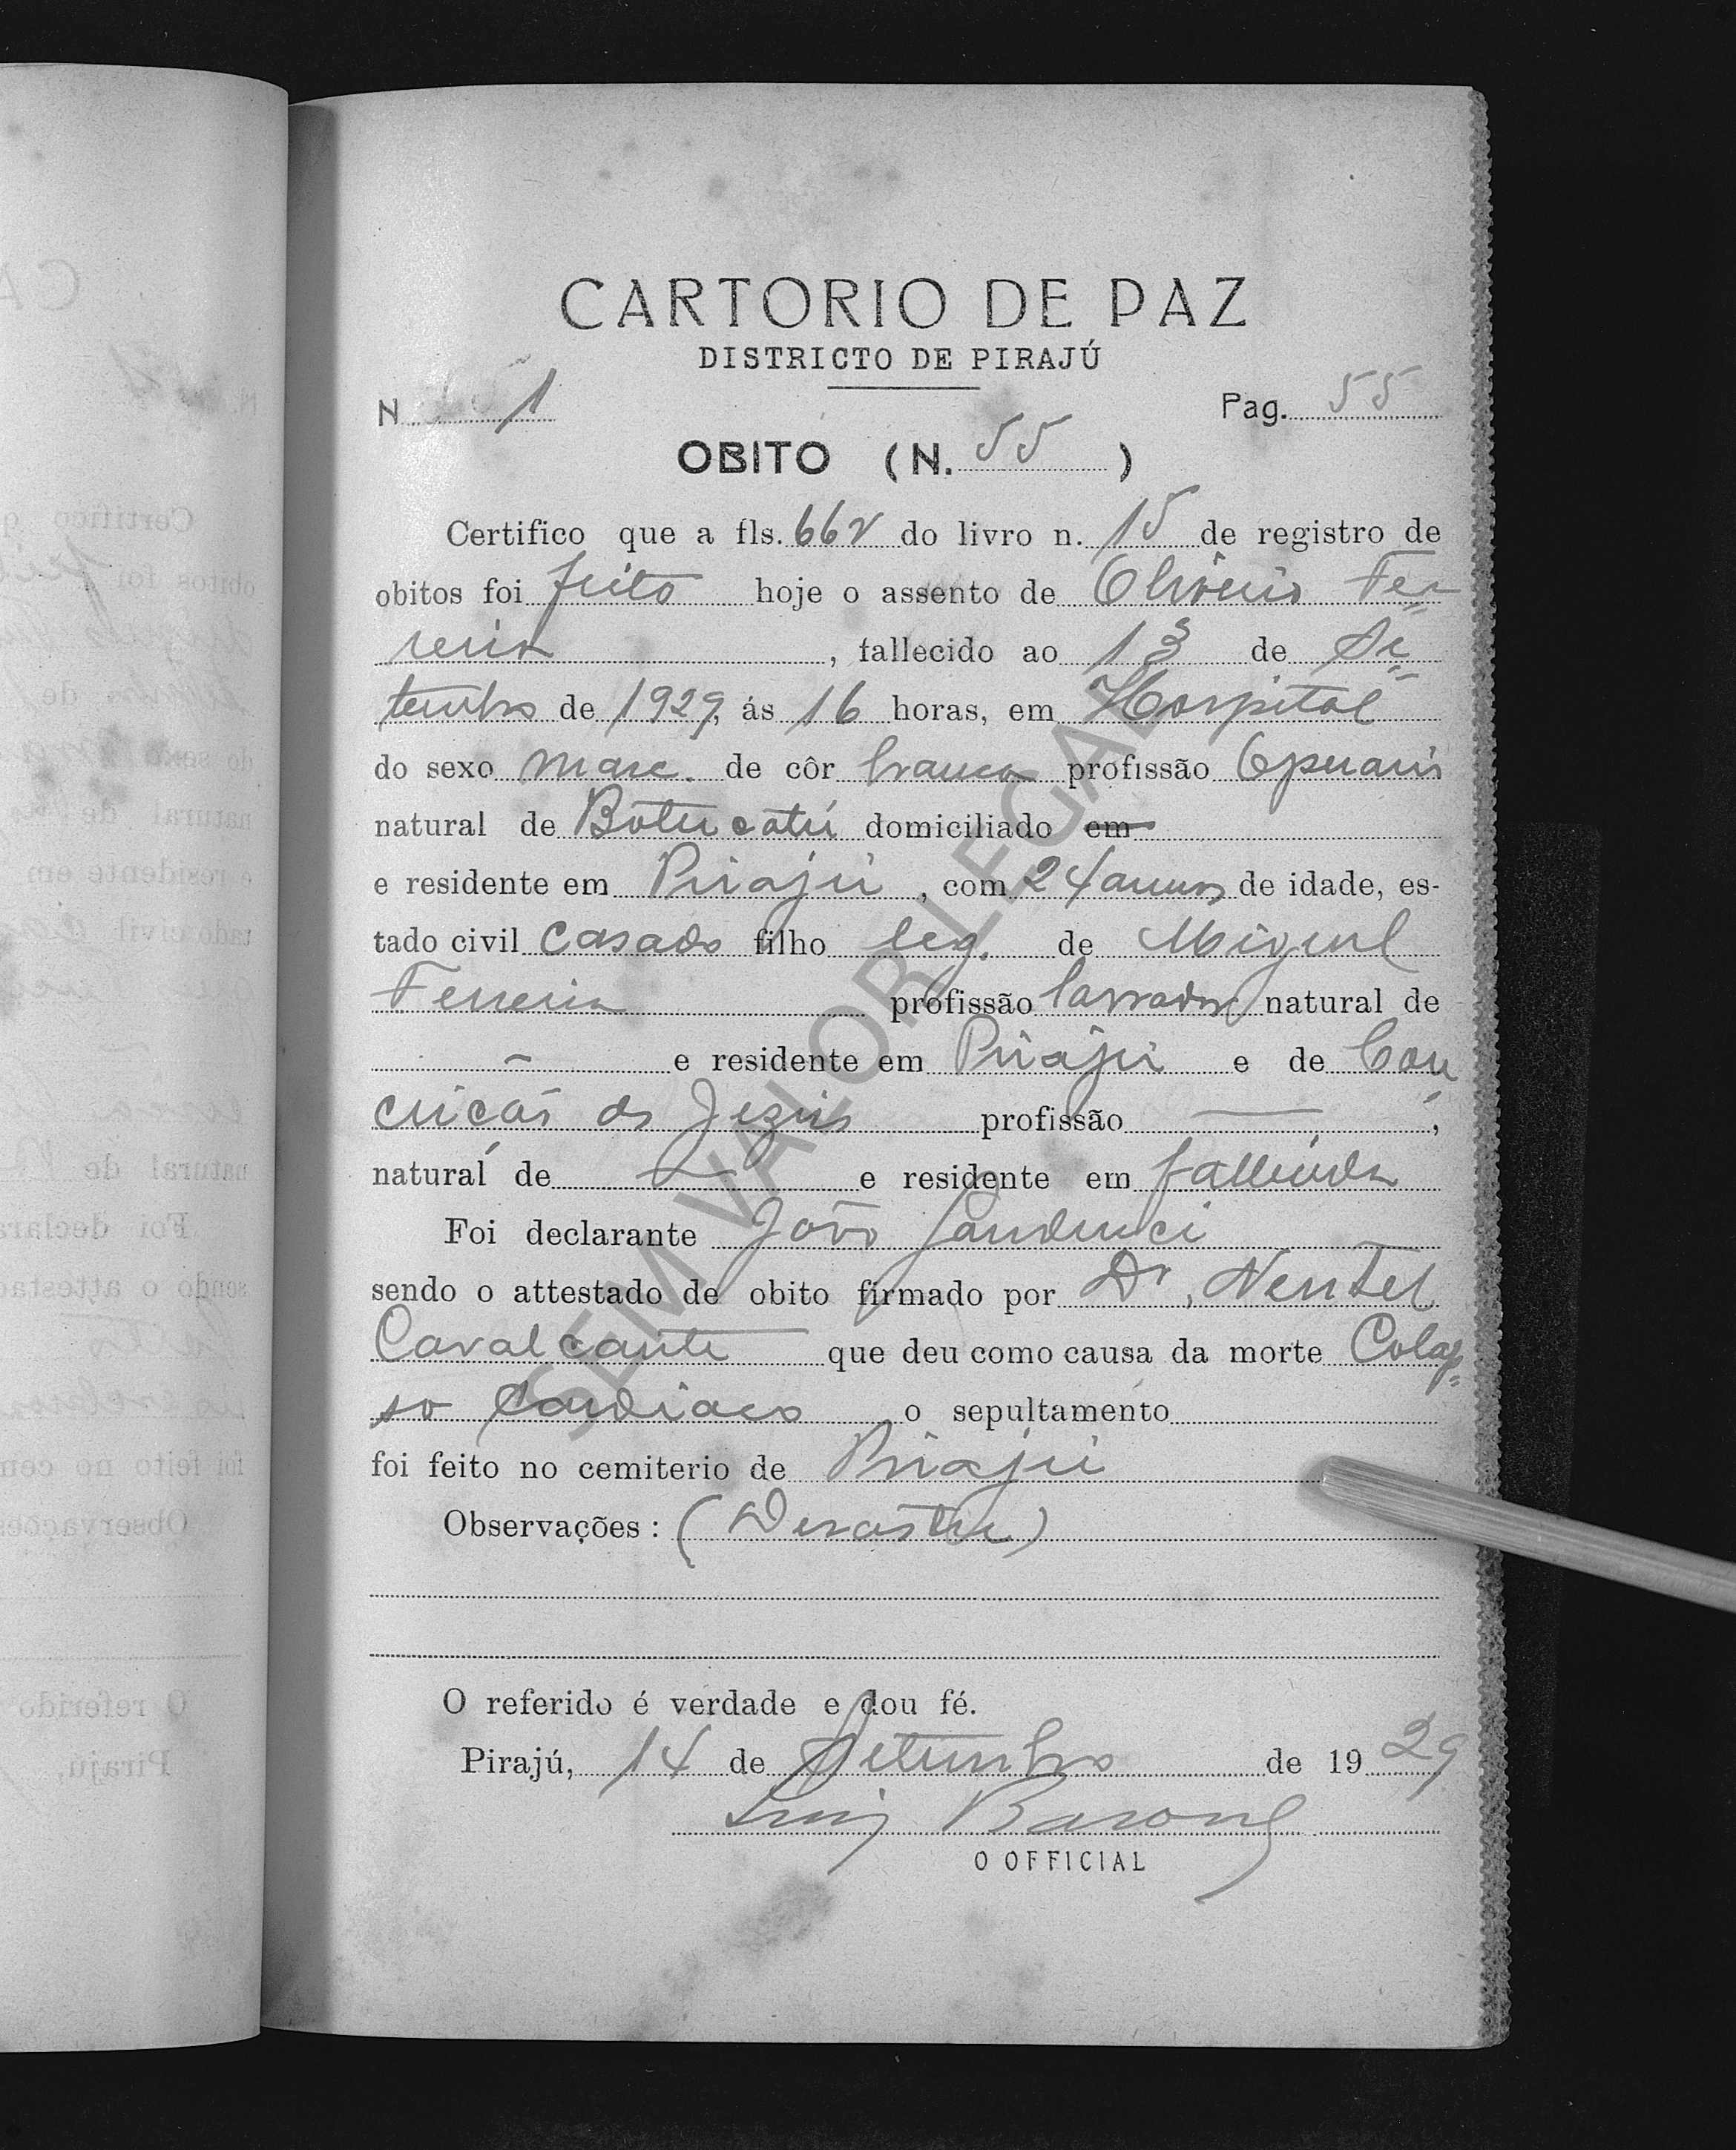 CARTORIO DE PAZ
DISTRICTO DE PIRAJÚ
N 1 Pag. 55
OBITO (N. 55 )
Certifico que a fls. 66v do livro n. 15 de registro de
obitos foi feito hoje o assento de Oliverio Fer=
reira, fallecido ao 13 de Se=
tembro de 1929, ás 16 horas, em Hospital
do sexo masc. de côr branca profissão Operario
natural de Botucatú domiciliado em
e residente em Pirajú, com 24 annos de idade, es-
tado civil casado filho leg. de Miguel
Ferreira profissão lavrador natural de
— e residente em Pirajú e de Con
ceicão de Jezus profissão —,
natural de — e residente em fallecida
Foi declarante João
sendo o attestado de obito firmado por Dr. Nentel
Cavalcante que deu como causa da morte Colap=
so Cardiaco o sepultamento
foi feito no cemiterio de Pirajú
Observações: (Desastre)
O referido é verdade e dou fé.
Pirajú, 14 de Setembro de 1929
Luiz Barone
O OFFICIAL
SEM VALOR LEGAL